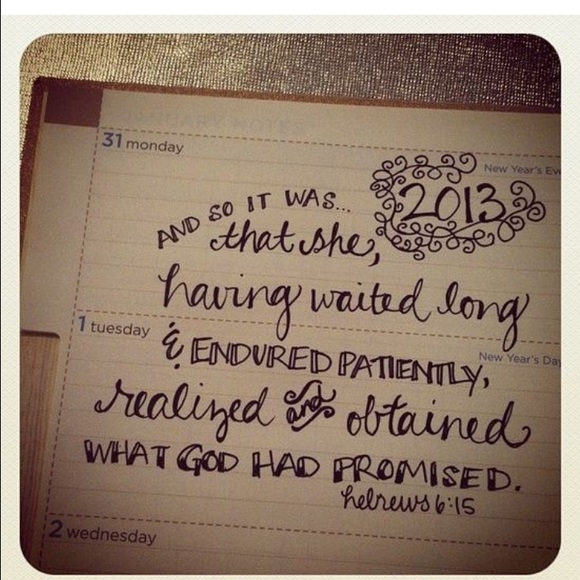 JANUARY NOTES
31 monday
New Year's Eve
2013
AND SO IT WAS...
that she,
having waited long
1 tuesday
New Year's Day
& ENDURED PATIENTLY,
realized and obtained
WHAT GOD HAD PROMISED.
hebrews 6:15
2 wednesday